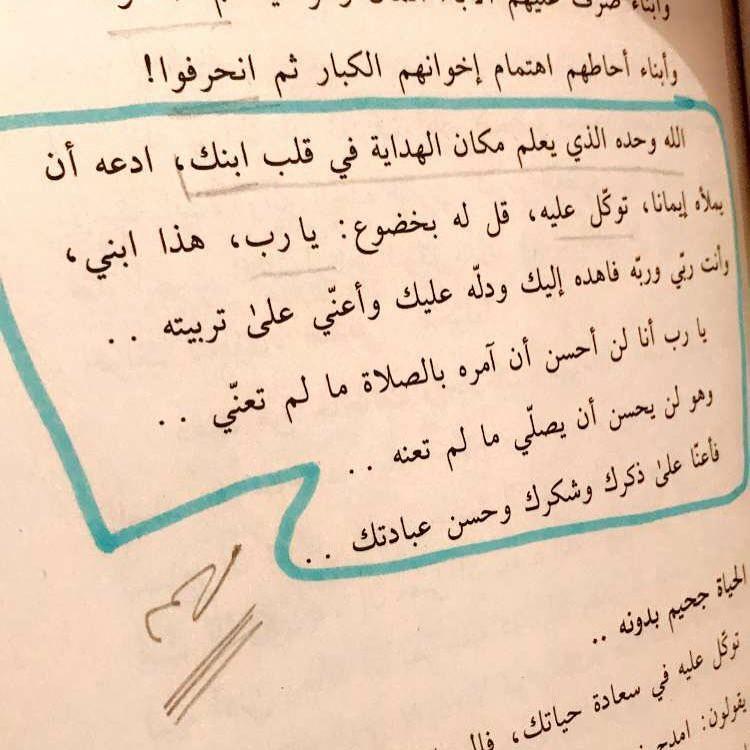 وأبناء صرف عليهم
وأبناء أحاطهم اهتمام إخوانهم الكبار ثم انحرفوا!
الله وحده الذي يعلم مكان الهداية في قلب ابنك، ادعه أن
يملأه إيمانا، توكّل عليه، قل له بخضوع: يا رب، هذا ابني،
وأنت ربّي وربّه فاهده إليك ودلّه عليك وأعنّي علىٰ تربيته ..
يا رب أنا لن أحسن أن آمره بالصلاة ما لم تعنّي ..
وهو لن يحسن أن يصلّي ما لم تعنه ..
فأعنّا علىٰ ذكرك وشكرك وحسن عبادتك ..
الحياة جحيم بدونه ..
توكّل عليه في سعادة حياتك،
يقولون: